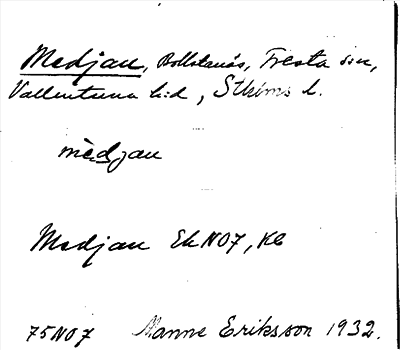 Medjan, Bollstanäs, Fresta sn,
Vallentuna hd, Sthlms l.
mèdjan
Medjan Ek N07, KC
75N07 Manne Eriksson 1932.